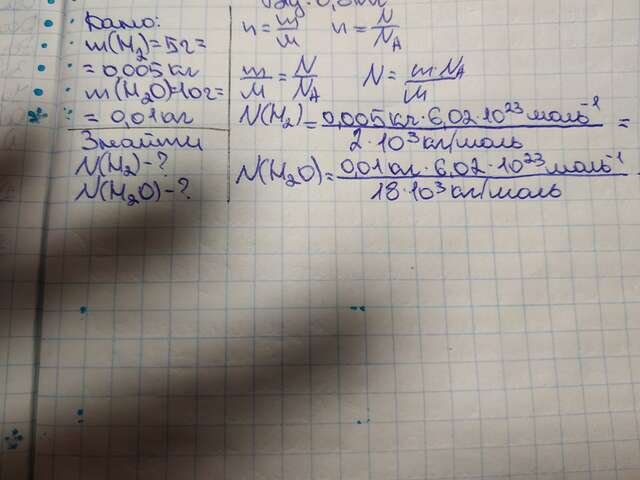 Дано:
m(H₂)=5г=
=0,005кг
m(H₂O)=10г=
=0,01кг
Знайти
N(H₂)-?
N(H₂O)-?
n=m/M n=N/N_A
m/M=N/N_A N=m·N_A/M
N(H₂)=0,005кг·6,02·10²³моль⁻¹/2·10³кг/моль=
N(H₂O)=0,01кг·6,02·10²³моль⁻¹/18·10³кг/моль